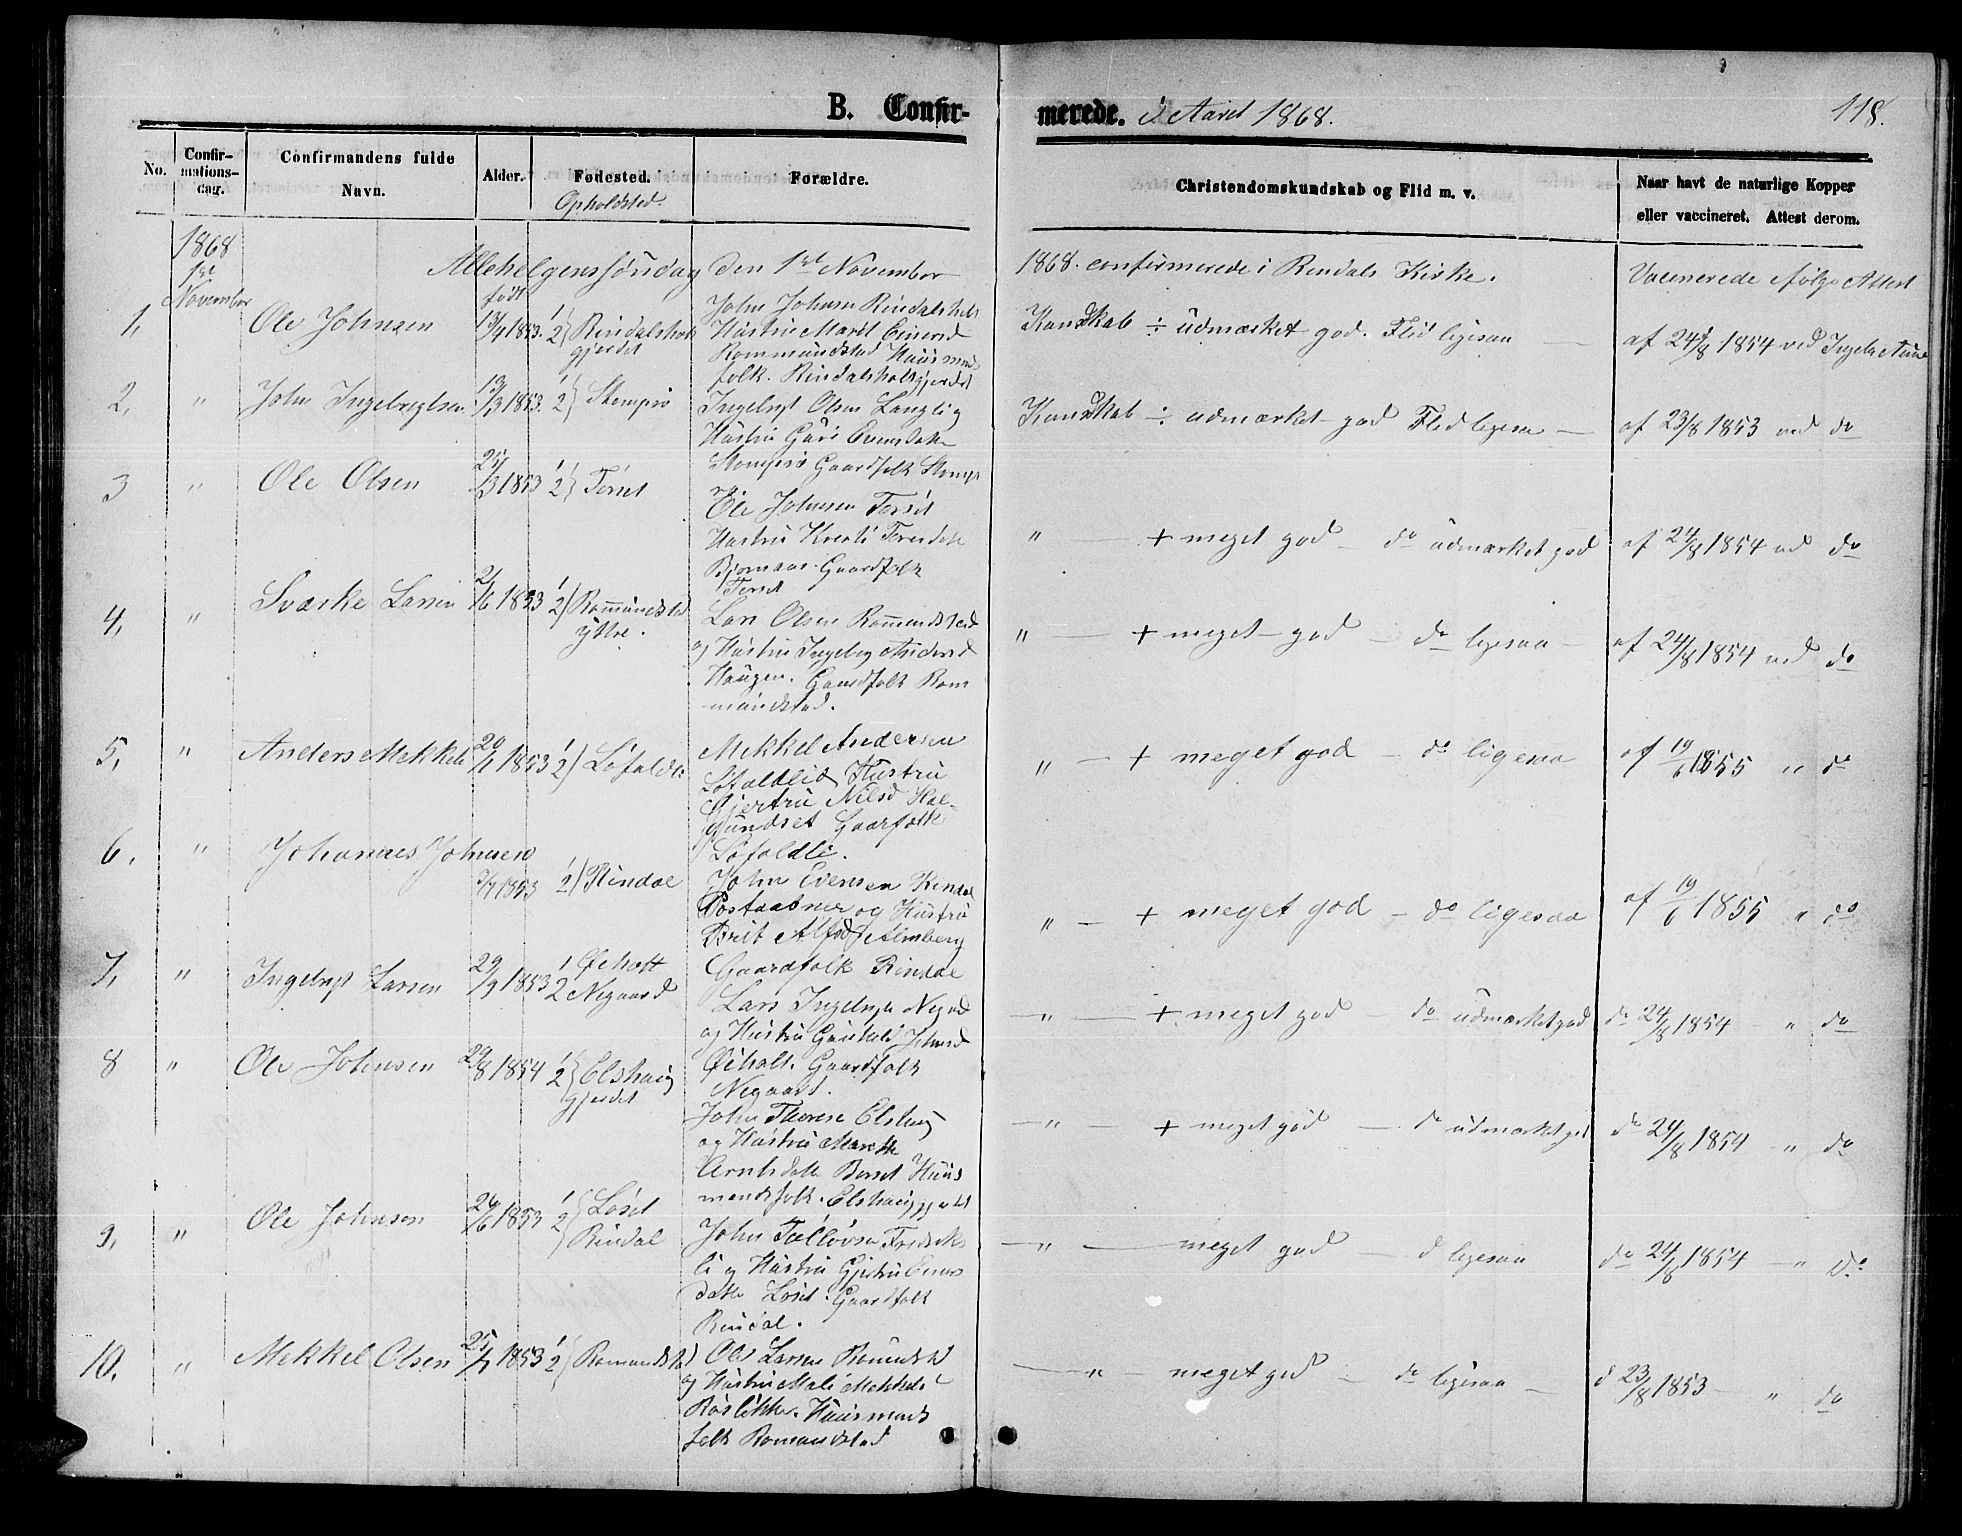 B. Confirmerede. i Aaret 1868. 118.
No. Confirmationsdag. Confirmandens fulde Navn. Alder. Fødested. Forældre. Christendomskundskab og Flid m. v. Naar havt de naturlige Kopper eller vaccineret. Attest derom.
Opholdsted.
1868
1ste November
Allehelgenssøndag den 1ste November 1868. confirmerede i Rindals Kirke. Vaccinerede ifølge Attest
født
1, Ole Johnsen 13/4 1853. 1 2 Rindalsholt gjerdet
John Johnsen Rindalsholt
Hustru Marit Einersd
Rommundstad Huusmands
folk. Rindalsholtgjerdet
Kundskab ÷ udmærket god. Flid ligesaa — af 24/8 1854 ved
2, " John Ingebrigtsen 13/3 1853. 1 2 Stompro
Ingebrigt Olsen Langli og
Hustru Guri Evensdatter
Stompro Gaardfolk Stompr
Kundskab ÷ udmærket god Flid ligesaa — af 23/8 1853 ved do
3 " Ole Olsen 25/3 1853 1 2 Torset
Ole Johnsen Torset
Hustru Kirsti Toresdatter
Bjørnaas. Gaardfolk
Torset
" — + meget god — do udmærket god af 24/8 1854 ved do
4, " Sværke Larsen 21/6 1853 1 2 Romundstad ytre.
Lars Olsen Romundstad
og Hustru Ingebor Andersd
Haugen. Gaardfolk Rom
mundstad.
" — + meget god — do ligesaa — af 24/8 1854 ved do
5, " Anders Mekkels 20/1 1853 1 2 Løfaldli
Mekkel Andersen
Løfaldlid Hustru
Gjertru Nilsd Hal-
gundset Gaarfolk
Løfaldli.
" — + meget god — do ligesaa af 19/6 1855 " do
6, " Johannes Johnsen 3/7 1853 1 2 Rindal
John Evensen Rindal
Postaabner og Hustru
Brit Alfsd Almberg
Gaardfolk Rindal
" — + meget god — do ligesaa af 19/6 1855 " do
7, " Ingebrigt Larsen 29/9 1853 1 2 Øiholt Negaard
Lars Ingebrigts Negrd
og Hustru Gunhild Johnsd
Øiholt. Gaardfolk
Negaard.
" — + meget god — do udmærket god do 24/8 1854 " do
8 " Ole Johnsen 29/8 1854 1 2 Elshaug gjerdet
John Thorese Elshaug
og Hustru Marette
Arntsdatte Berset Huus
mandsfolk. Elshauggjerdet
" — + meget god — do udmærket god do 24/8 1854 " do
9, " Ole Johnsen 24/6 1853 1 2 Løset Rindal
John Tolløvsen Frediks
li og Hustru Gjertru Einers
datter Løset. Gaardfolk
Rindal.
" — meget god — d ligesaa do 24/8 1854 — " Do
10, " Mekkel Olsen 25/7 1853 1 2 Romundstad
Ole Larsen Romundst
og Hustru Mali Mekkels-
Husmands
folk Romundstad
— " — meget god — do ligesaa — d 23/8 1853 — " do